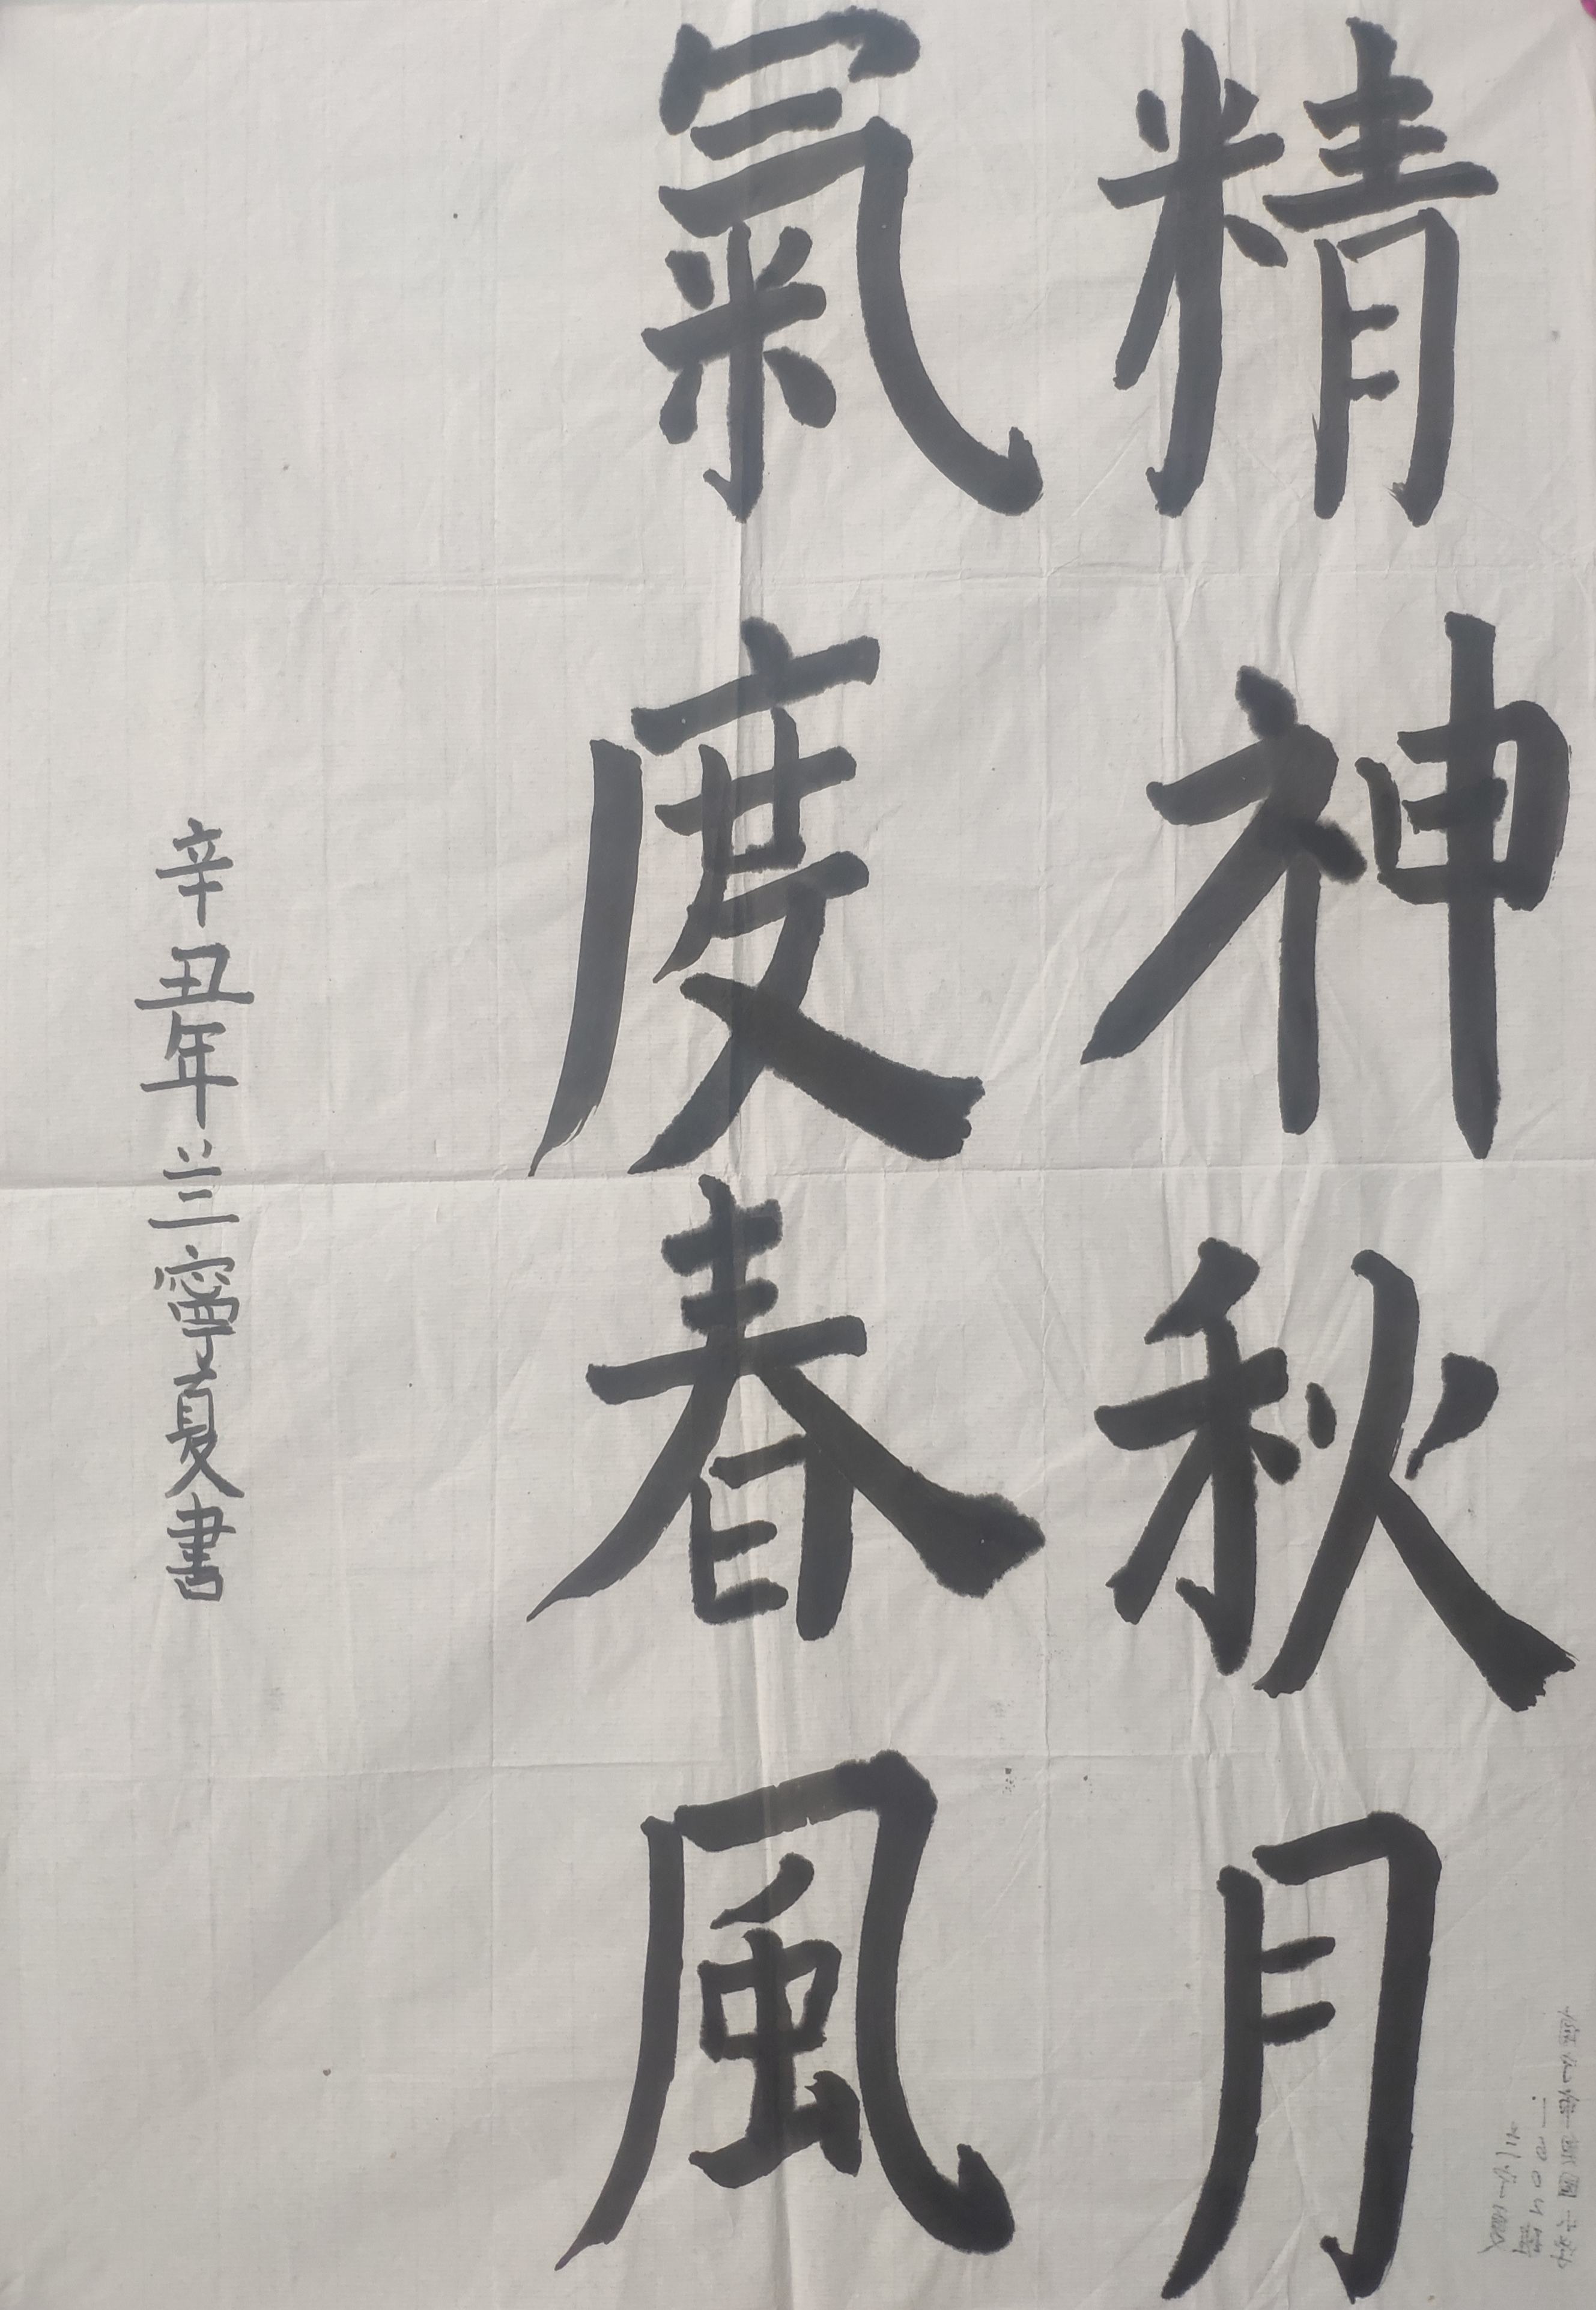 精神秋月
氣度春風
辛丑年兰寧夏書